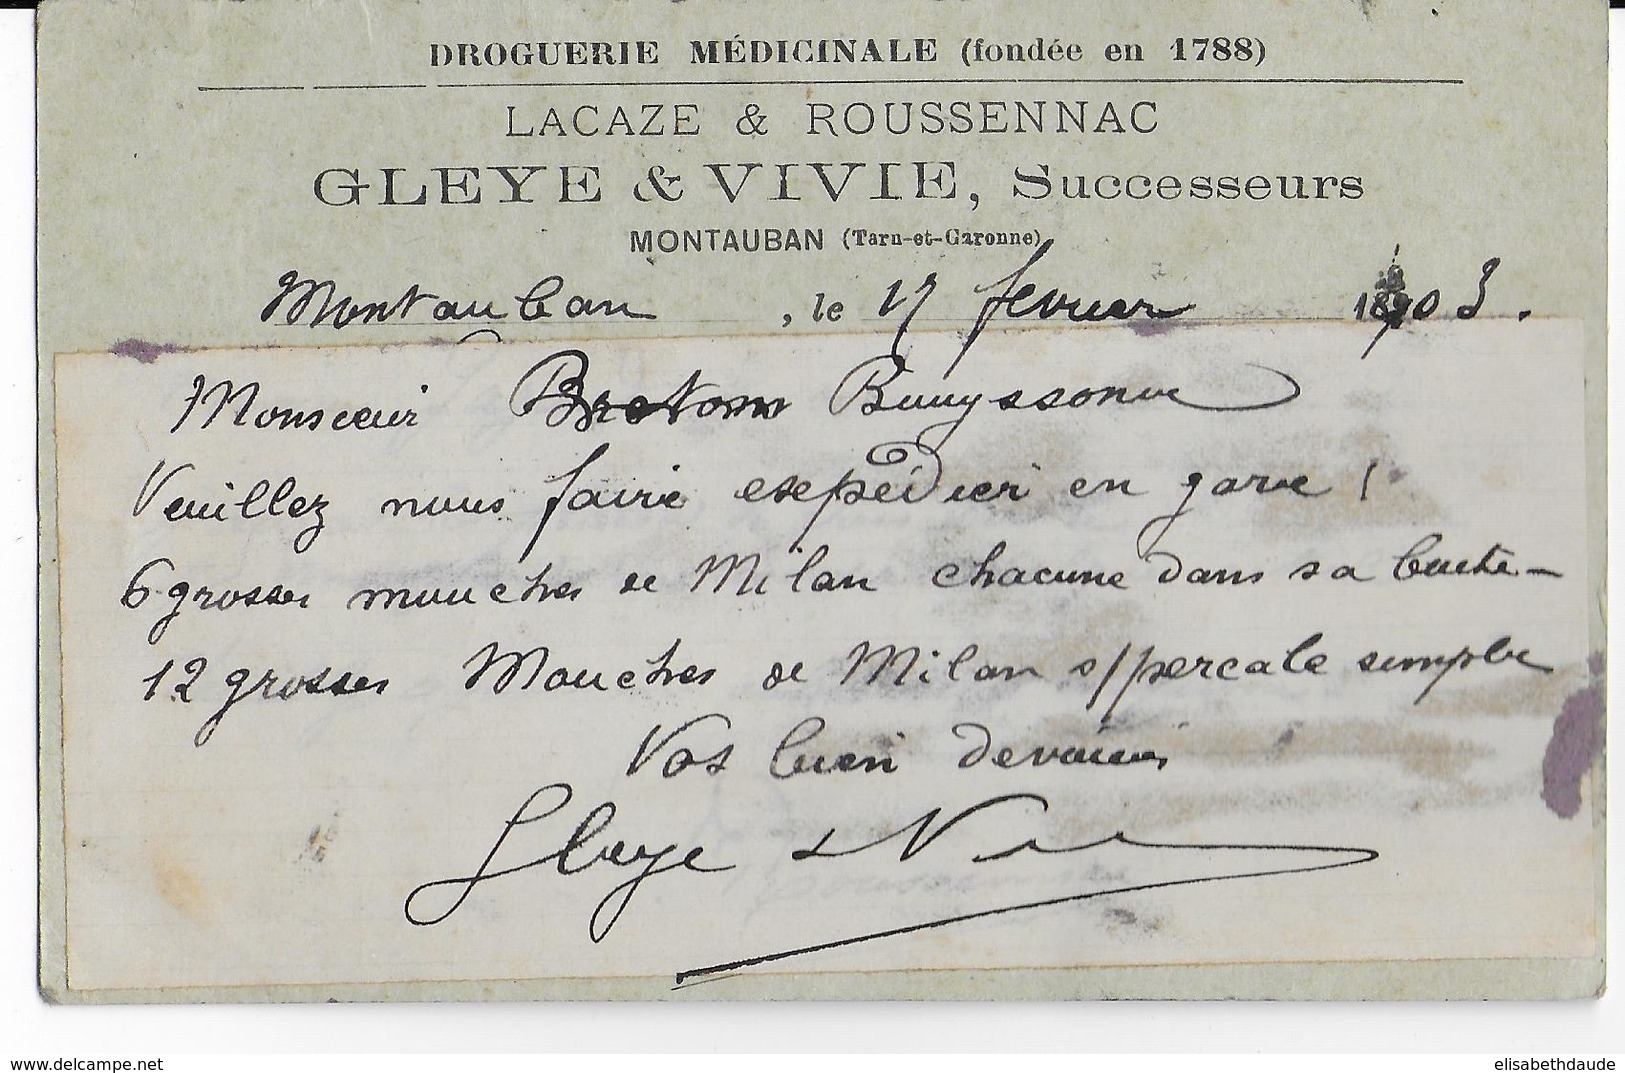 DROGUERIE MÉDICINALE (fondée en 1788)
LACAZE & ROUSSENNAC
GLEYE & VIVIE, Successeurs
MONTAUBAN (Tarn-et-Garonne)
Montauban, le 17 fevrier 1903.
Monsieur Breton Buuyssonne
Veuillez nous faire expédier en gare !
6 grosses mouches de Milan chacune dans sa boite -
12 grosses Mouches de Milan s/percale simple
Vos bien devoués
Gleye & Vivie
delcampe.net
elisabethdaude